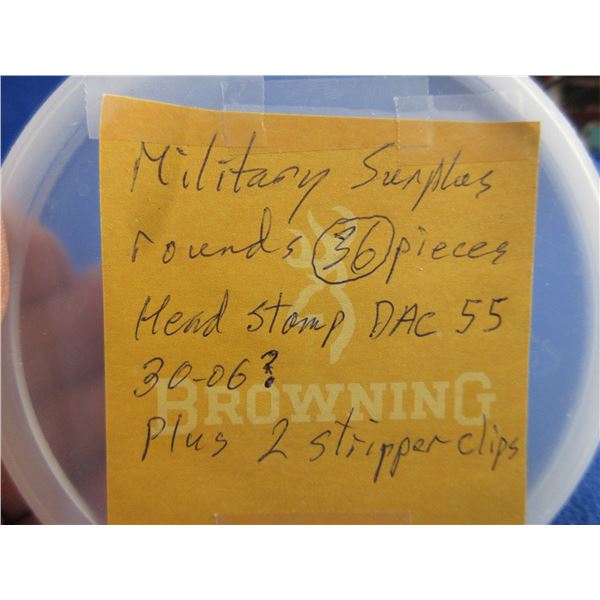 Military Surplus
rounds 36 pieces
Head Stamp DAC 55
30-06?
BROWNING
Plus 2 stripper clips